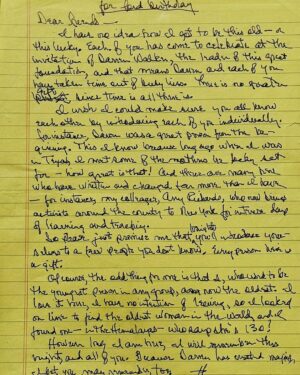 for ford birthday
Dear friends -
I have no idea how I got to be this old - or
this lucky. Each of you has come to celebrate at the
invitation of Darren Walker, the leader of this great
foundation, and that means Darren and each of you
has taken time out of busy lives. There is no greater
gift, since time is all there is.
I wish I could make sure you all know
each other by introducing each of you individually.
For instance, Darren was a great person from the be-
ginning. This I know because long ago when I was
in Texas, I met some of the mothers he
for - how great is that! And there are many here
who have written and changed far more than I have
- for instance, my colleague, Amy Richards, who now brings
activists around the country to New York for intense days
of learning and teaching.
So please just promise me that, tonight, you'll introduce your-
selves to a few people you don't know. Every person here is
a gift.
Of course, the odd thing for me is that I, who used to be
the youngest person in any group, am now the oldest. I
love it here, I have no intention of leaving, so I looked
on line to find the oldest woman in the world, and I
found one - in the Himalayas - who is 130!
However long I am here, I will remember this
night and all of you because Darren has created magic.
I bet you may remember, too.